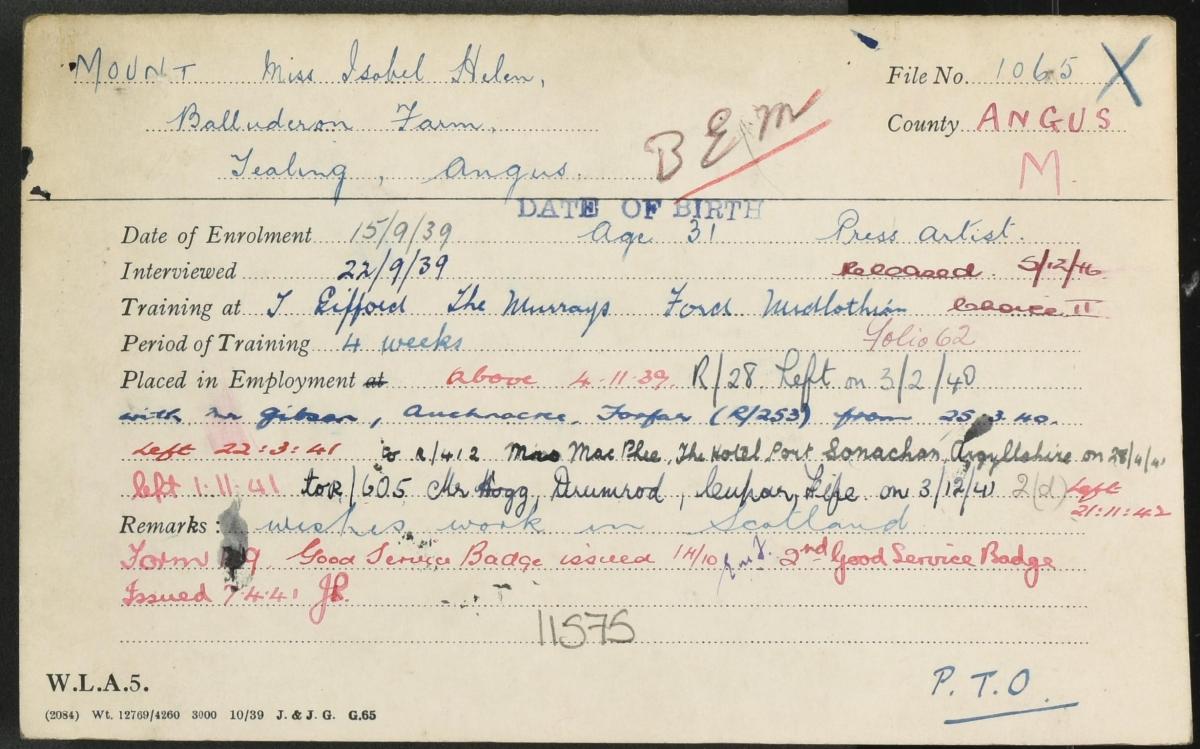 MOUNT Miss Isobel Helen, File No. 1065 X
Balluderon Farm, County ANGUS
Tealing, Angus. B E M M
DATE OF BIRTH
Date of Enrolment 15/9/39 Age 31 Press Artist.
Interviewed 22/9/39 Released 5/12/46
Training at T Gifford The Murrays Ford Midlothian Choice II
Period of Training 4 weeks Folio 62
Placed in Employment at above 4.11.39. R/28 Left on 3/2/40
with Mr Gibson, Auchnacree, Forfar (R/253) from 25.3.40.
Left 22:3:41 to R/412 Mrs MacPhee, The Hotel Port Sonachan, Argyllshire on 28/4/41
left 1.11.41 to R/605 Mr Hogg, Drumrod, Cupar, Fife on 3/12/41 2(d) Left
21:11:42
Remarks: wishes work in Scotland
Form Good Service Badge issued 2nd Good Service Badge
Issued 7.4.41
11575
W.L.A.5. P.T.O.
(2084) Wt. 12769/4260 3000 10/39 J. & J. G. G.65